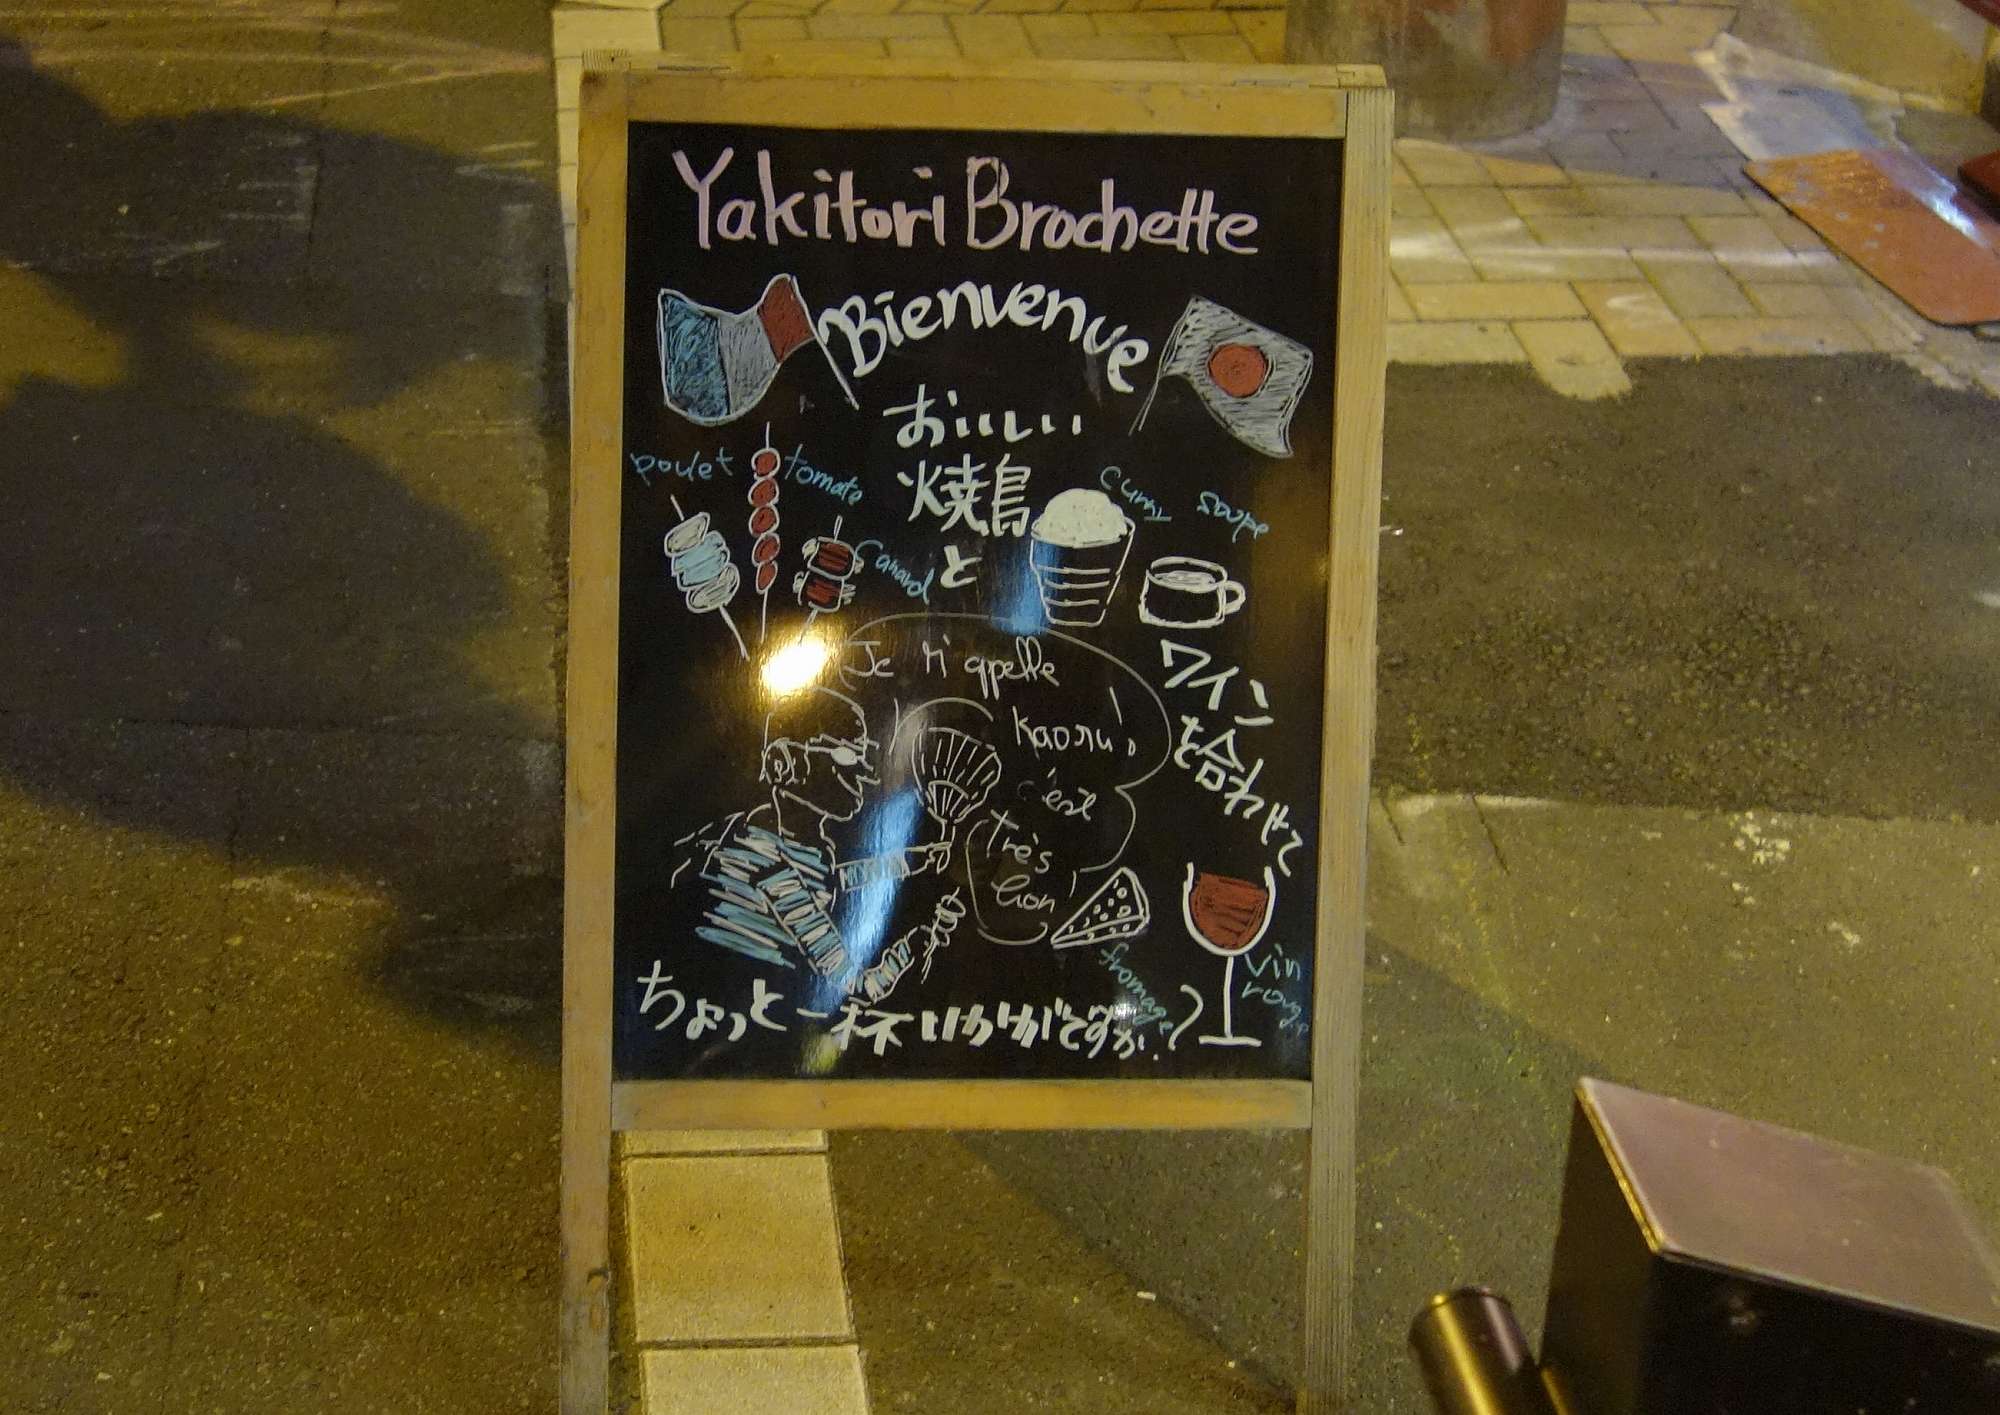 Yakitori Brochette
Bienvenue
おいしい
焼鳥
と
poulet
tomate
canard
curry
soupe
ワイン
を合わせて
Je m'appelle
Kaoru!
c'est
Très
bon
fromage
vin
rouge
ちょっと一杯いかがですか?